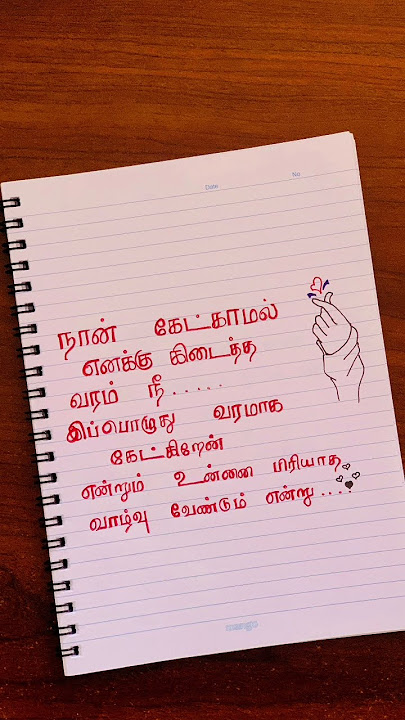 Date
No
நான் கேட்காமல்
எனக்கு கிடைத்த
வரம் நீ.....
இப்பொழுது வரமாக
கேட்கிறேன்
என்றும் உன்னை பிரியாத
வாழ்வு வேண்டும் என்று....